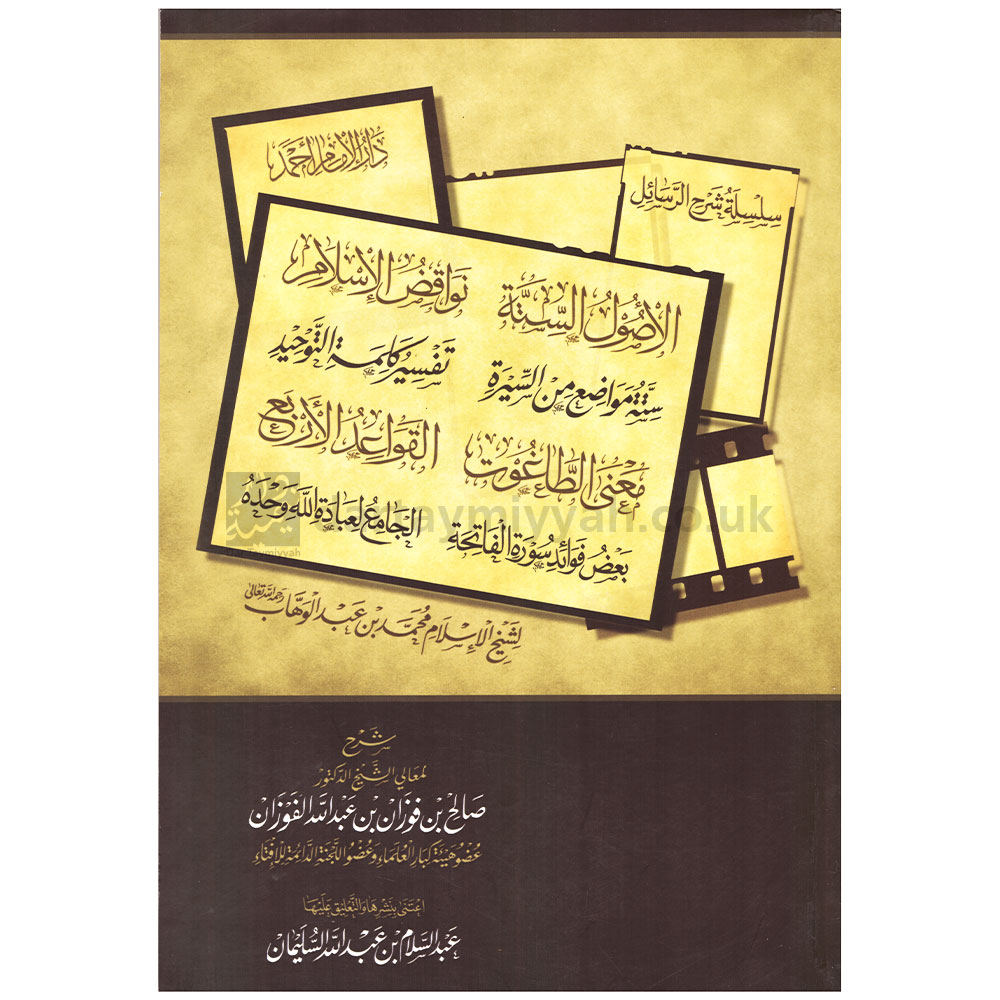 دَارُ الْإِمَامِ أَحْمَدَ
سِلْسِلَةُ شَرْحِ الرَّسَائِلِ
الْأُصُولُ السِّتَّةُ
نَوَاقِضُ الْإِسْلَامِ
سِتَّةُ مَوَاضِعَ مِنَ السِّيرَةِ
تَفْسِيرُ كَلِمَةِ التَّوْحِيدِ
مَعْنَى الطَّاغُوتِ
الْقَوَاعِدُ الْأَرْبَعُ
بَعْضُ فَوَائِدِ سُورَةِ الْفَاتِحَةِ
الْجَامِعُ لِعِبَادَةِ اللَّهِ وَحْدَهُ
لشيخ الإسلام محمد بن عبد الوهاب رحمه الله تعالى
شرح
لمعالي الشيخ الدكتور
صالح بن فوزان بن عبد الله الفوزان
عضو هيئة كبار العلماء وعضو اللجنة الدائمة للإفتاء
اعتنى بنشرها والتعليق عليها
عبد السلام بن عبد الله السليمان
Dar Taymiyyah
dartaymiyyah.co.uk